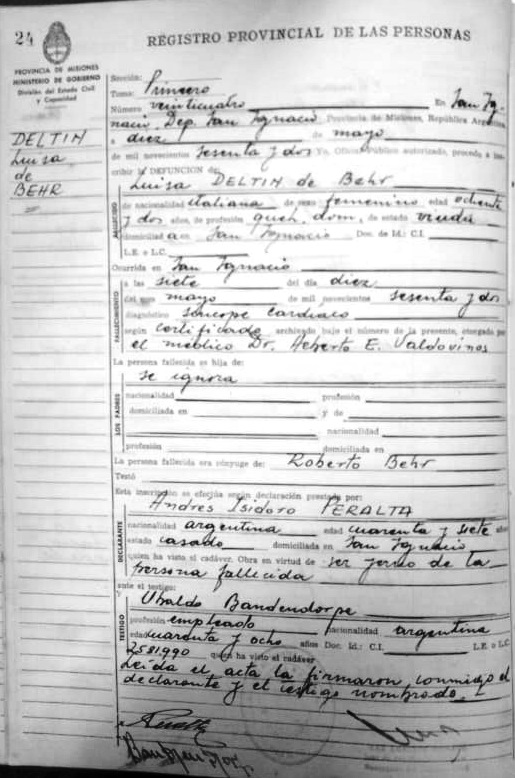 24
REGISTRO PROVINCIAL DE LAS PERSONAS
PROVINCIA DE MISIONES
MINISTERIO DE GOBIERNO
División del Estado Civil
y Capacidad
DELTIN
Luisa
de
BEHR
Sección:
Tomo: Primero
Número veinticuatro En San Ig-
nacio, Dep. San Ignacio Provincia de Misiones, República Argentina
a diez de mayo
de mil novecientos sesenta y dos Yo, Oficial Público autorizado, procedo a ins-
cribir la DEFUNCION de:
Luisa DELTIN de Behr
FALLECIDO
de nacionalidad italiana de sexo femenino edad ochenta
y dos años, de profesión queh. dom., de estado viuda
domiciliada en San Ignacio Doc. de Id.: C.I.
L.E. o L.C.
FALLECIMIENTO
Ocurrida en San Ignacio
a las siete del día diez
del mes mayo de mil novecientos sesenta y dos
diagnóstico síncope cardíaco
según certificado archivado bajo el número de la presente, otorgado por
el médico Dr. Heberto E. Valdovinos
La persona fallecida es hija de:
se ignora
LOS PADRES
nacionalidad profesión
domiciliada en y de
nacionalidad
profesión domiciliada en
La persona fallecida era cónyuge de: Roberto Behr
Testó
Esta inscripción se efectúa según declaración prestada por:
Andres Isidoro PERALTA
DECLARANTE
nacionalidad argentina edad cuarenta y siete años
estado casado domiciliada en San Ignacio
quien ha visto el cadáver. Obra en virtud de ser yerno de la
persona fallecida
ante el testigo:
y Ubaldo Bandendorpe
TESTIGO
profesión empleado nacionalidad argentina
edad cuarenta y ocho años Doc. Id.: C.I. L.E. o L.C.
2581990 quien ha visto el cadáver
Leída el acta la firmaron conmigo el
declarante y el testigo nombrado.